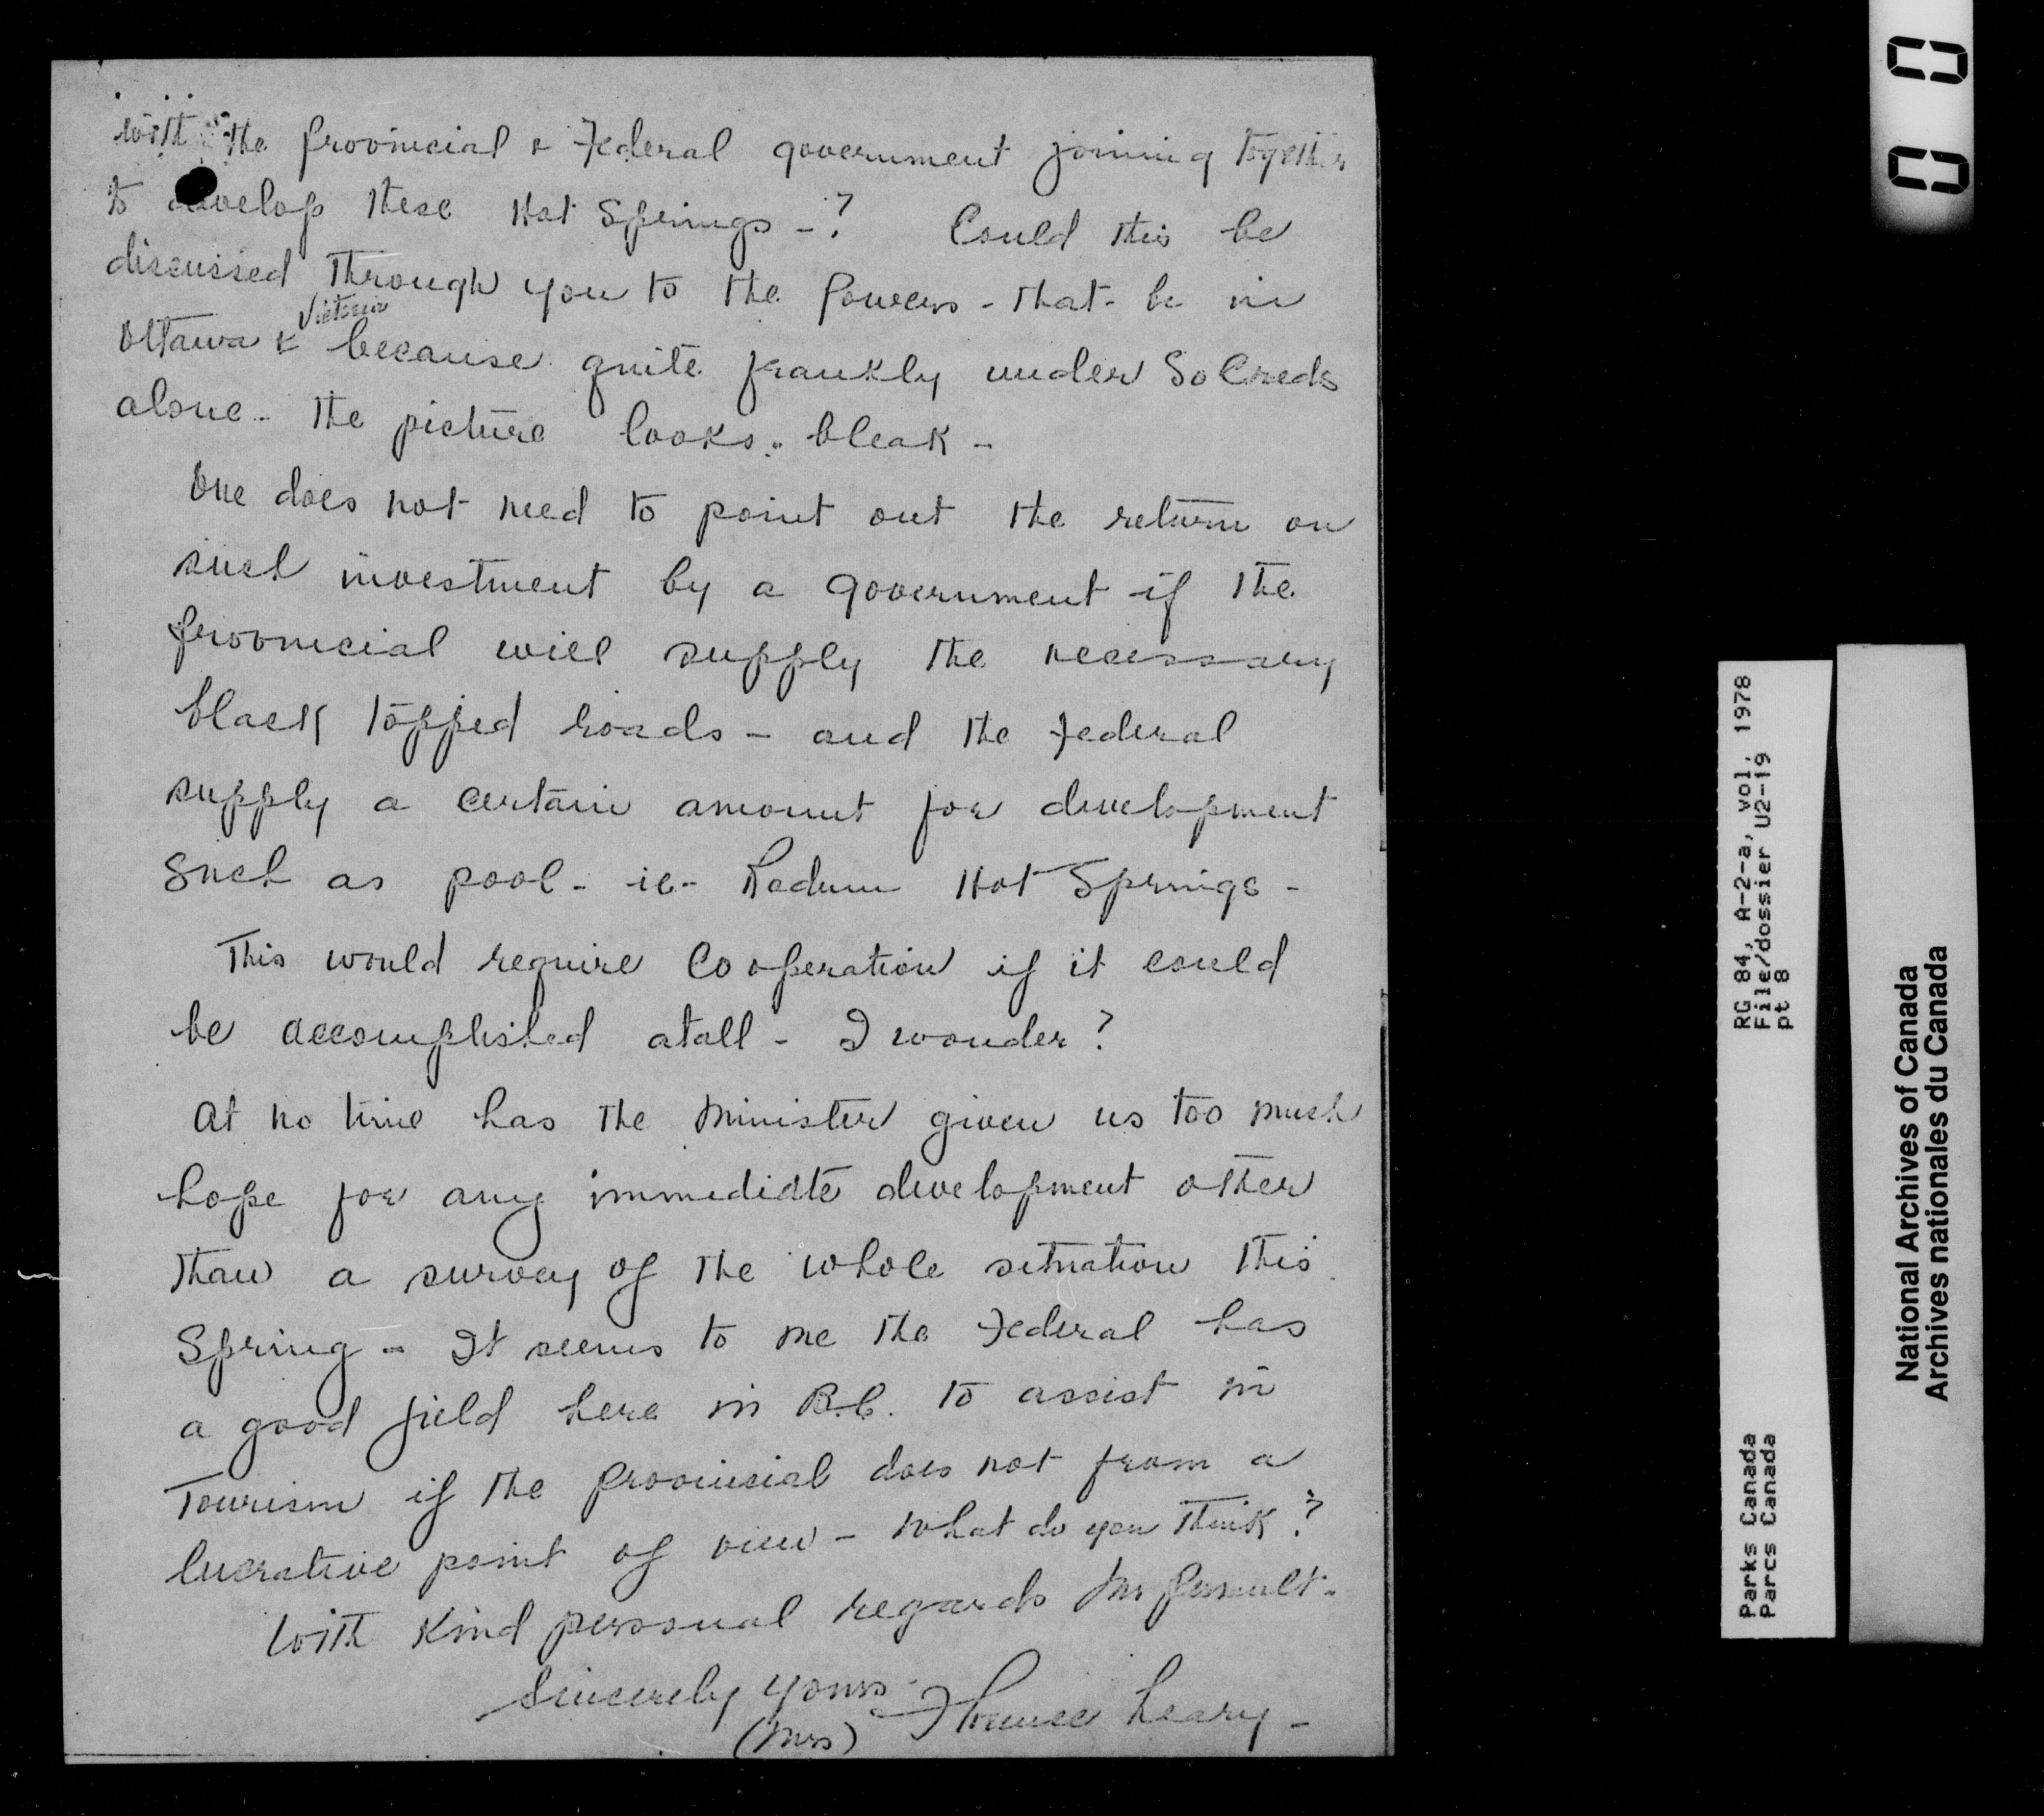 with the provincial & Federal government joining together
to develop these Hot Springs - ? Could this be
discussed through you to the Powers - that - be in
Victoria
Ottawa & because quite frankly under So Creds
alone - the picture looks - bleak -
One does not need to point out the return on
such investment by a government if the
provincial will supply the necessary
black topped roads - and the Federal
supply a certain amount for development
such as pool - ie - Radium Hot Springs -
This would require Cooperation if it could
be accomplished atall - I wonder?
At no time has the Minister given us too much
hope for any immediate development other
than a survey of the whole situation this
Spring - It seems to me the Federal has
a good field here in B.C. to assist in
Tourism if the provincial does not from a
lucrative point of view - What do you think?
With kind personal regards Mr
Sincerely yours -
(Mrs) Florence Leary -
00
RG 84, A-2-a, vol. 1978
File/dossier U2-19
pt 8
Parks Canada
Parcs Canada
National Archives of Canada
Archives nationales du Canada